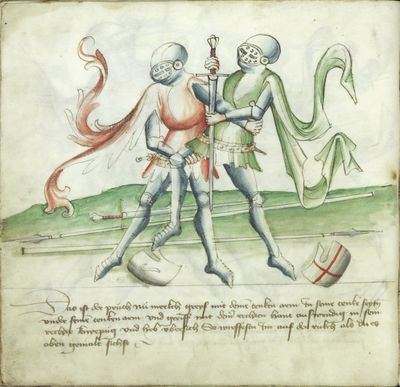 Das ist der pruch Nu merckh greyff mit deine tencken arm in seine tencke seytn
vnder seine tencken arm vnd greiff mit deiner rechten hant auswendig in sein
rechte kniepüg vnd heb vbersich So wurffestu in auf den rukch als du es
oben gemalt sichst